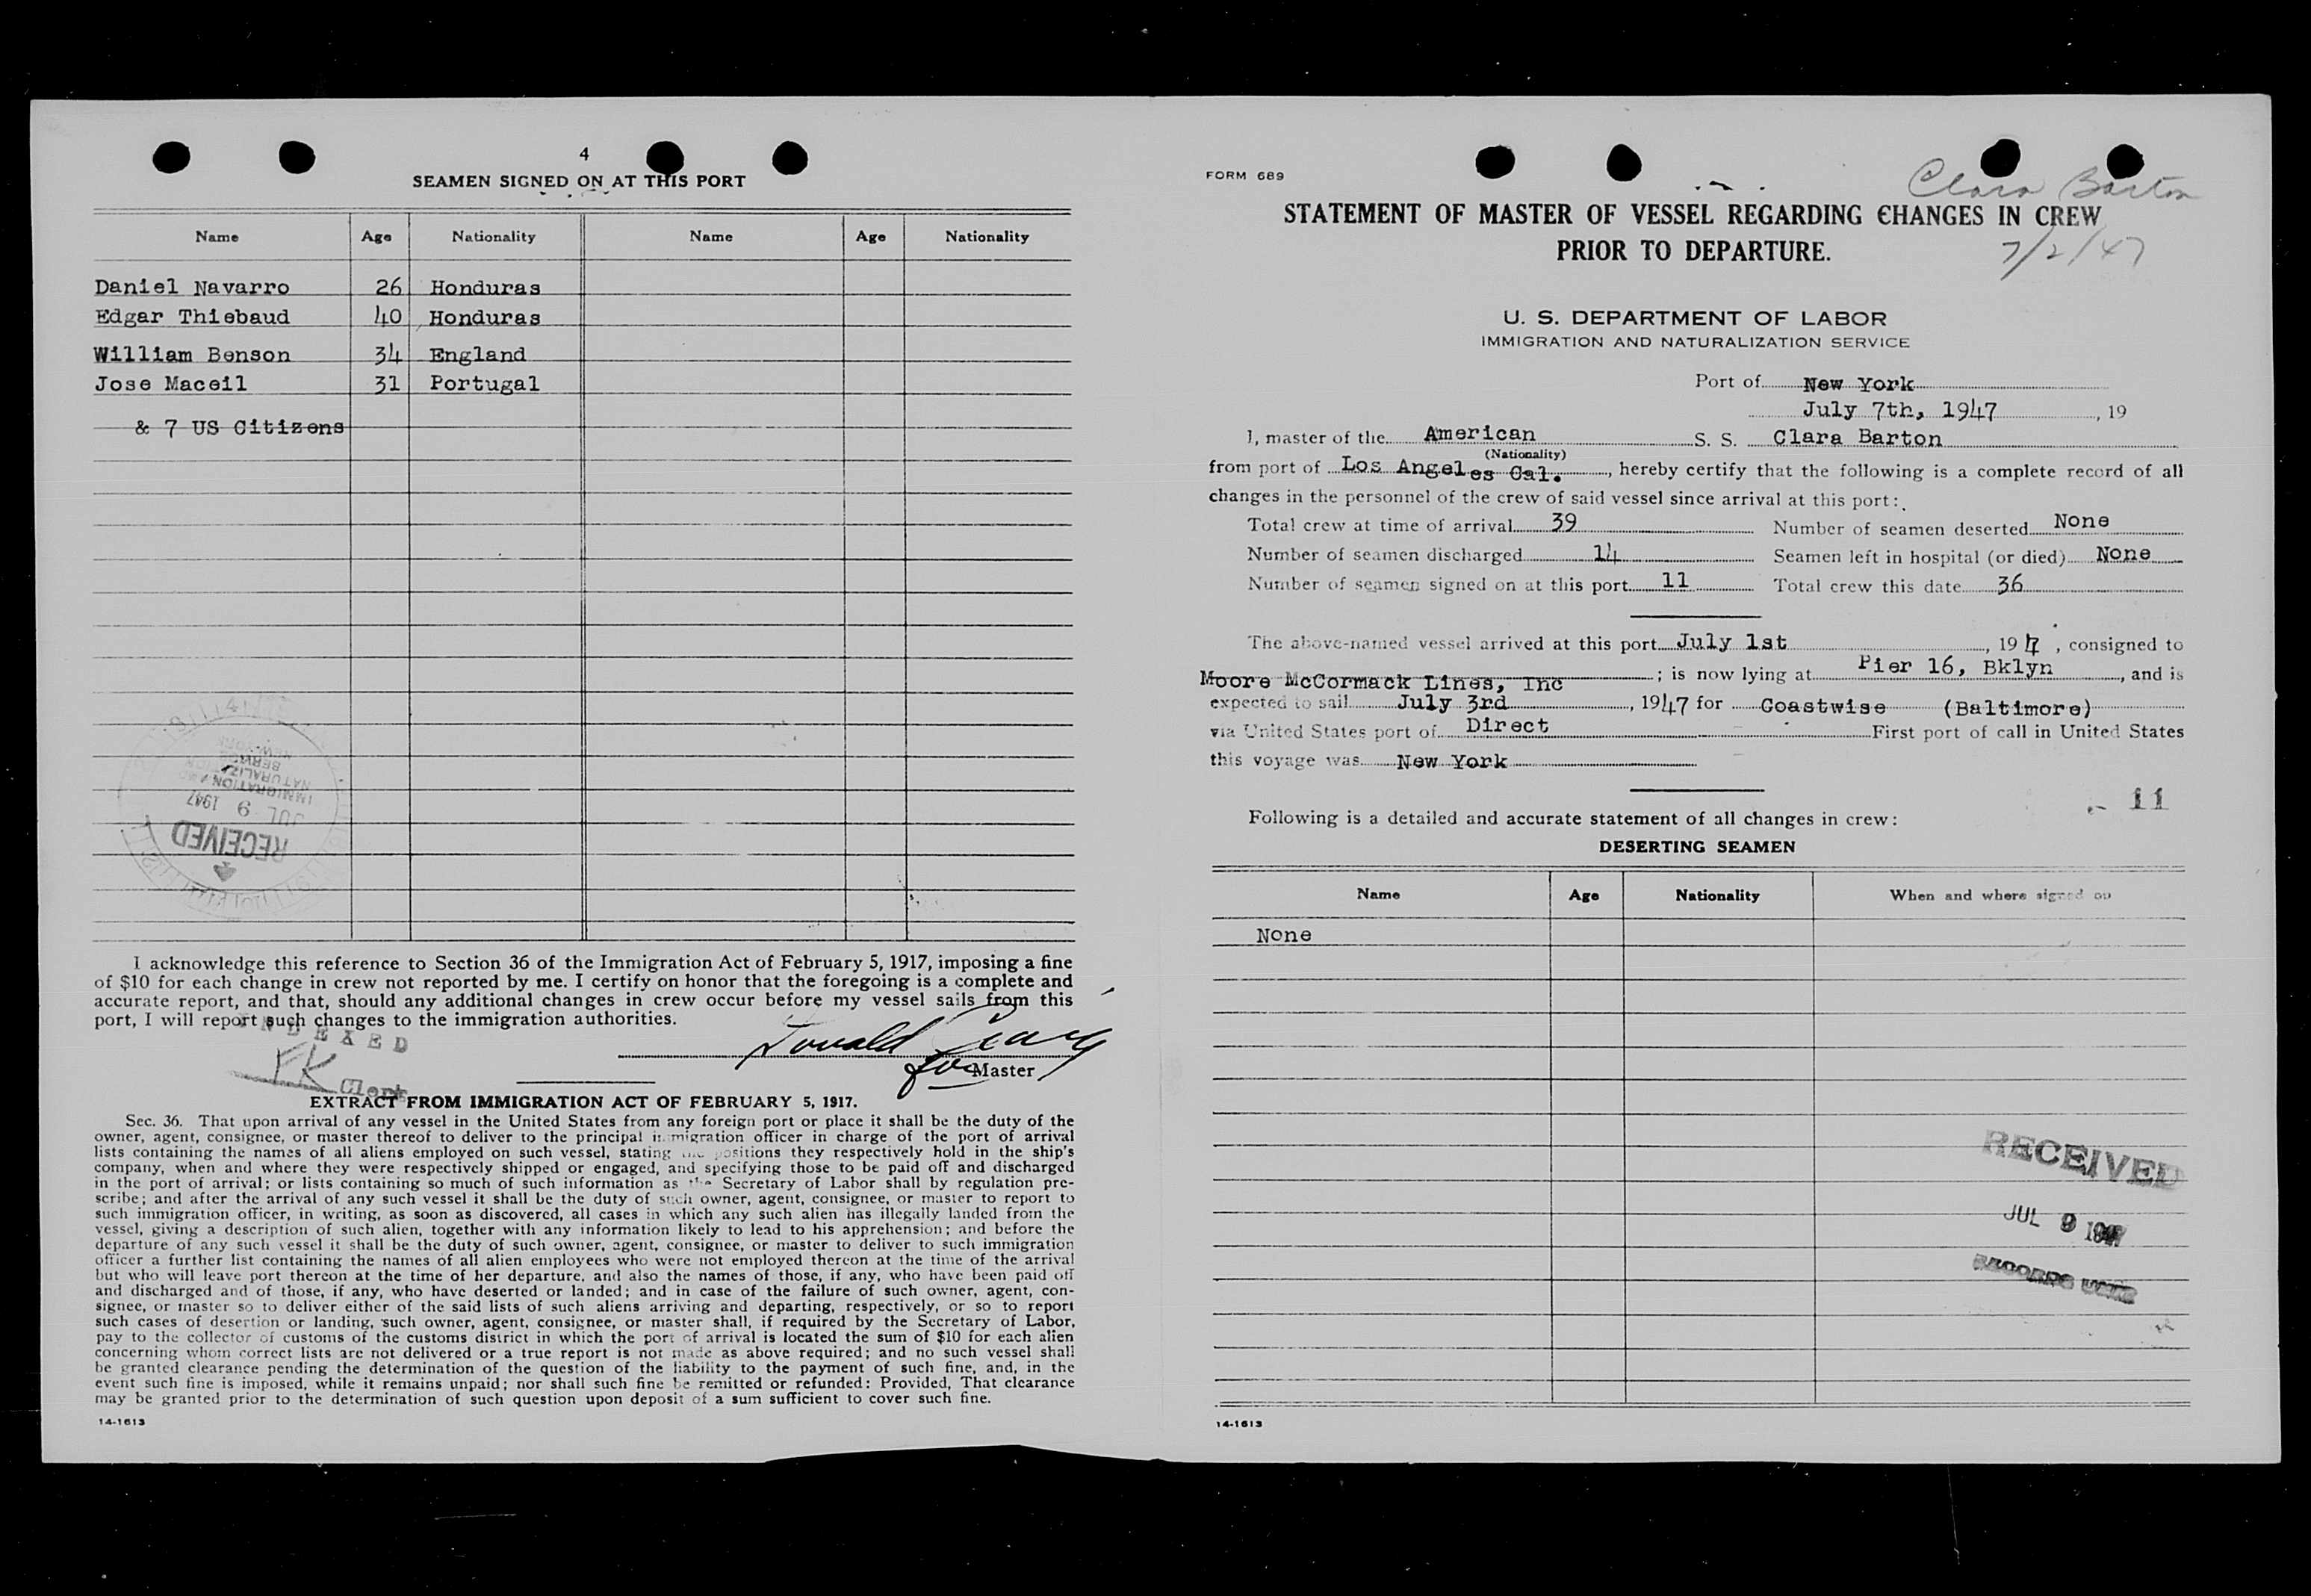 4
SEAMEN SIGNED ON AT THIS PORT
Name Age Nationality Name Age Nationality
Daniel Navarro 26 Honduras
Edgar Thiebaud 40 Honduras
William Benson 34 England
Jose Maceil 31 Portugal
& 7 US Citizens
NEW YORK
SERVICE
NATURALIZATION
IMMIGRATION AND
JUL 9 1947
RECEIVED
I acknowledge this reference to Section 36 of the Immigration Act of February 5, 1917, imposing a fine
of $10 for each change in crew not reported by me. I certify on honor that the foregoing is a complete and
accurate report, and that, should any additional changes in crew occur before my vessel sails from this
port, I will report such changes to the immigration authorities.
INDEXED
FK Clerk
Donald
for Master
EXTRACT FROM IMMIGRATION ACT OF FEBRUARY 5, 1917.
Sec. 36. That upon arrival of any vessel in the United States from any foreign port or place it shall be the duty of the
owner, agent, consignee, or master thereof to deliver to the principal immigration officer in charge of the port of arrival
lists containing the names of all aliens employed on such vessel, stating the positions they respectively hold in the ship's
company, when and where they were respectively shipped or engaged, and specifying those to be paid off and discharged
in the port of arrival; or lists containing so much of such information as the Secretary of Labor shall by regulation pre-
scribe; and after the arrival of any such vessel it shall be the duty of such owner, agent, consignee, or master to report to
such immigration officer, in writing, as soon as discovered, all cases in which any such alien has illegally landed from the
vessel, giving a description of such alien, together with any information likely to lead to his apprehension; and before the
departure of any such vessel it shall be the duty of such owner, agent, consignee, or master to deliver to such immigration
officer a further list containing the names of all alien employees who were not employed thereon at the time of the arrival
but who will leave port thereon at the time of her departure, and also the names of those, if any, who have been paid off
and discharged and of those, if any, who have deserted or landed; and in case of the failure of such owner, agent, con-
signee, or master so to deliver either of the said lists of such aliens arriving and departing, respectively, or so to report
such cases of desertion or landing, such owner, agent, consignee, or master shall, if required by the Secretary of Labor,
pay to the collector of customs of the customs district in which the port of arrival is located the sum of $10 for each alien
concerning whom correct lists are not delivered or a true report is not made as above required; and no such vessel shall
be granted clearance pending the determination of the question of the liability to the payment of such fine, and, in the
event such fine is imposed, while it remains unpaid; nor shall such fine be remitted or refunded: Provided, That clearance
may be granted prior to the determination of such question upon deposit of a sum sufficient to cover such fine.
14-1613
FORM 689
Clara Barton
STATEMENT OF MASTER OF VESSEL REGARDING CHANGES IN CREW
PRIOR TO DEPARTURE.
7/2/47
U. S. DEPARTMENT OF LABOR
IMMIGRATION AND NATURALIZATION SERVICE
Port of New York
July 7th, 1947, 19
I, master of the American S. S. Clara Barton
(Nationality)
from port of Los Angeles Cal., hereby certify that the following is a complete record of all
changes in the personnel of the crew of said vessel since arrival at this port:
Total crew at time of arrival 39 Number of seamen deserted None
Number of seamen discharged 14 Seamen left in hospital (or died) None
Number of seamen signed on at this port 11 Total crew this date 36
The above-named vessel arrived at this port July 1st, 1947, consigned to
Moore McCormack Lines, Inc; is now lying at Pier 16, Bklyn, and is
expected to sail July 3rd, 1947 for Coastwise (Baltimore)
via United States port of Direct First port of call in United States
this voyage was New York
11
Following is a detailed and accurate statement of all changes in crew:
DESERTING SEAMEN
Name Age Nationality When and where signed on
None
RECEIVED
JUL 9 1947
RECORDS UNIT
14-1613